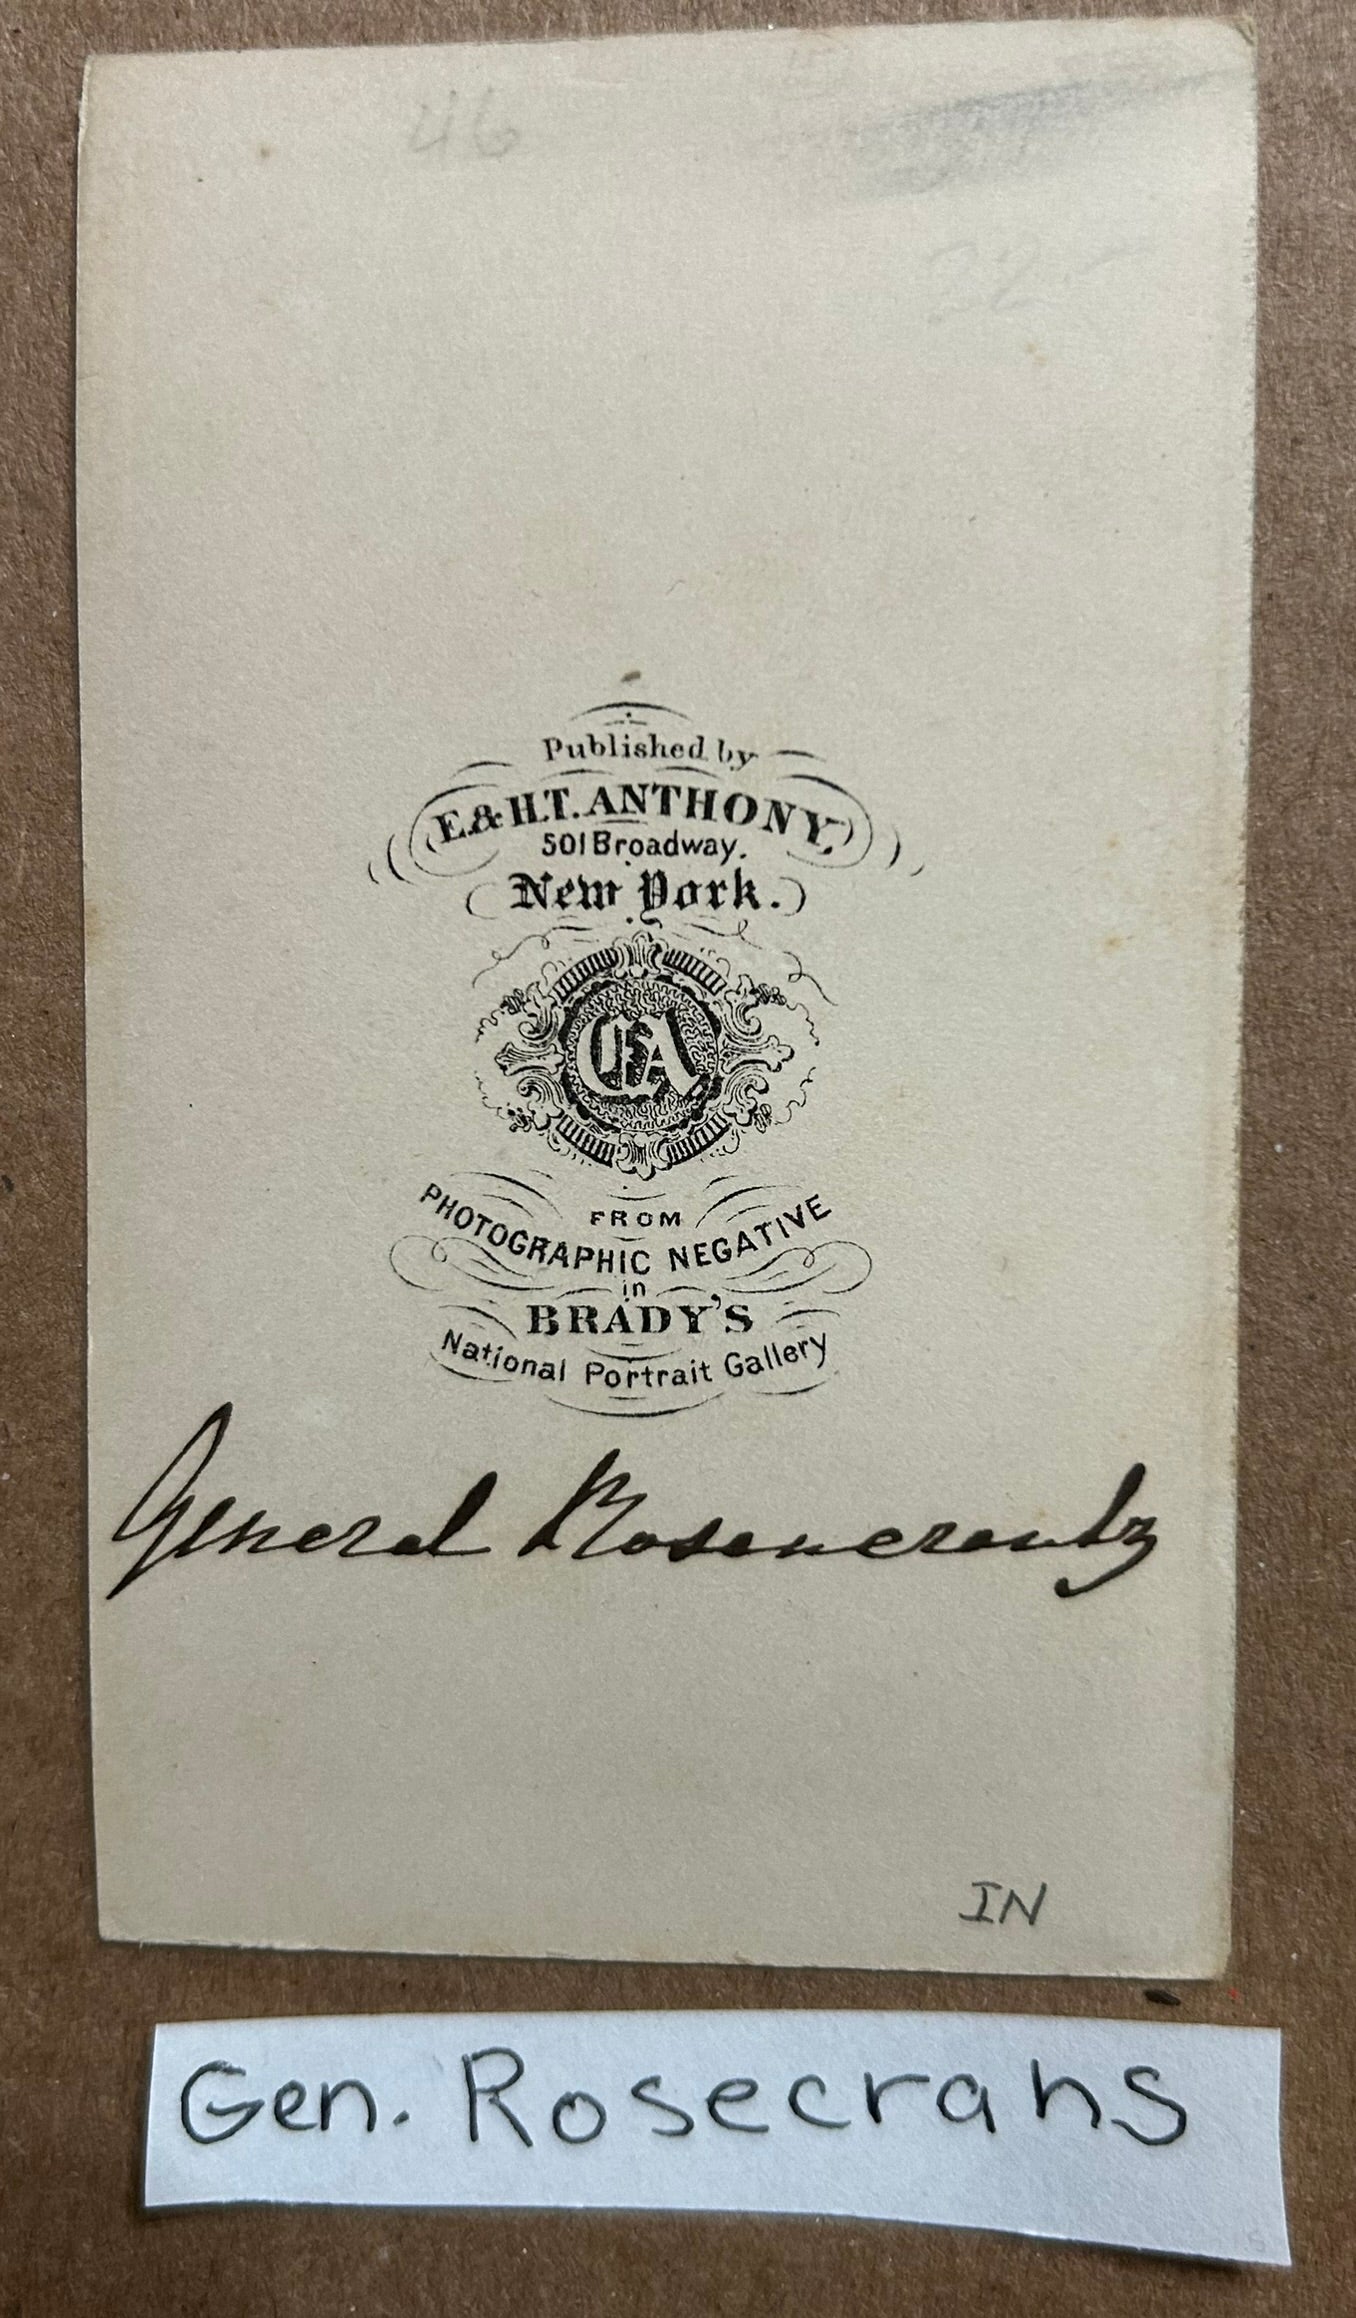 46
22-
Published by
E. & H.T. ANTHONY,
501 Broadway.
New York.
EA
FROM
PHOTOGRAPHIC NEGATIVE
in
BRADY'S
National Portrait Gallery
General Rosenerantz
IN
Gen. Rosecrans